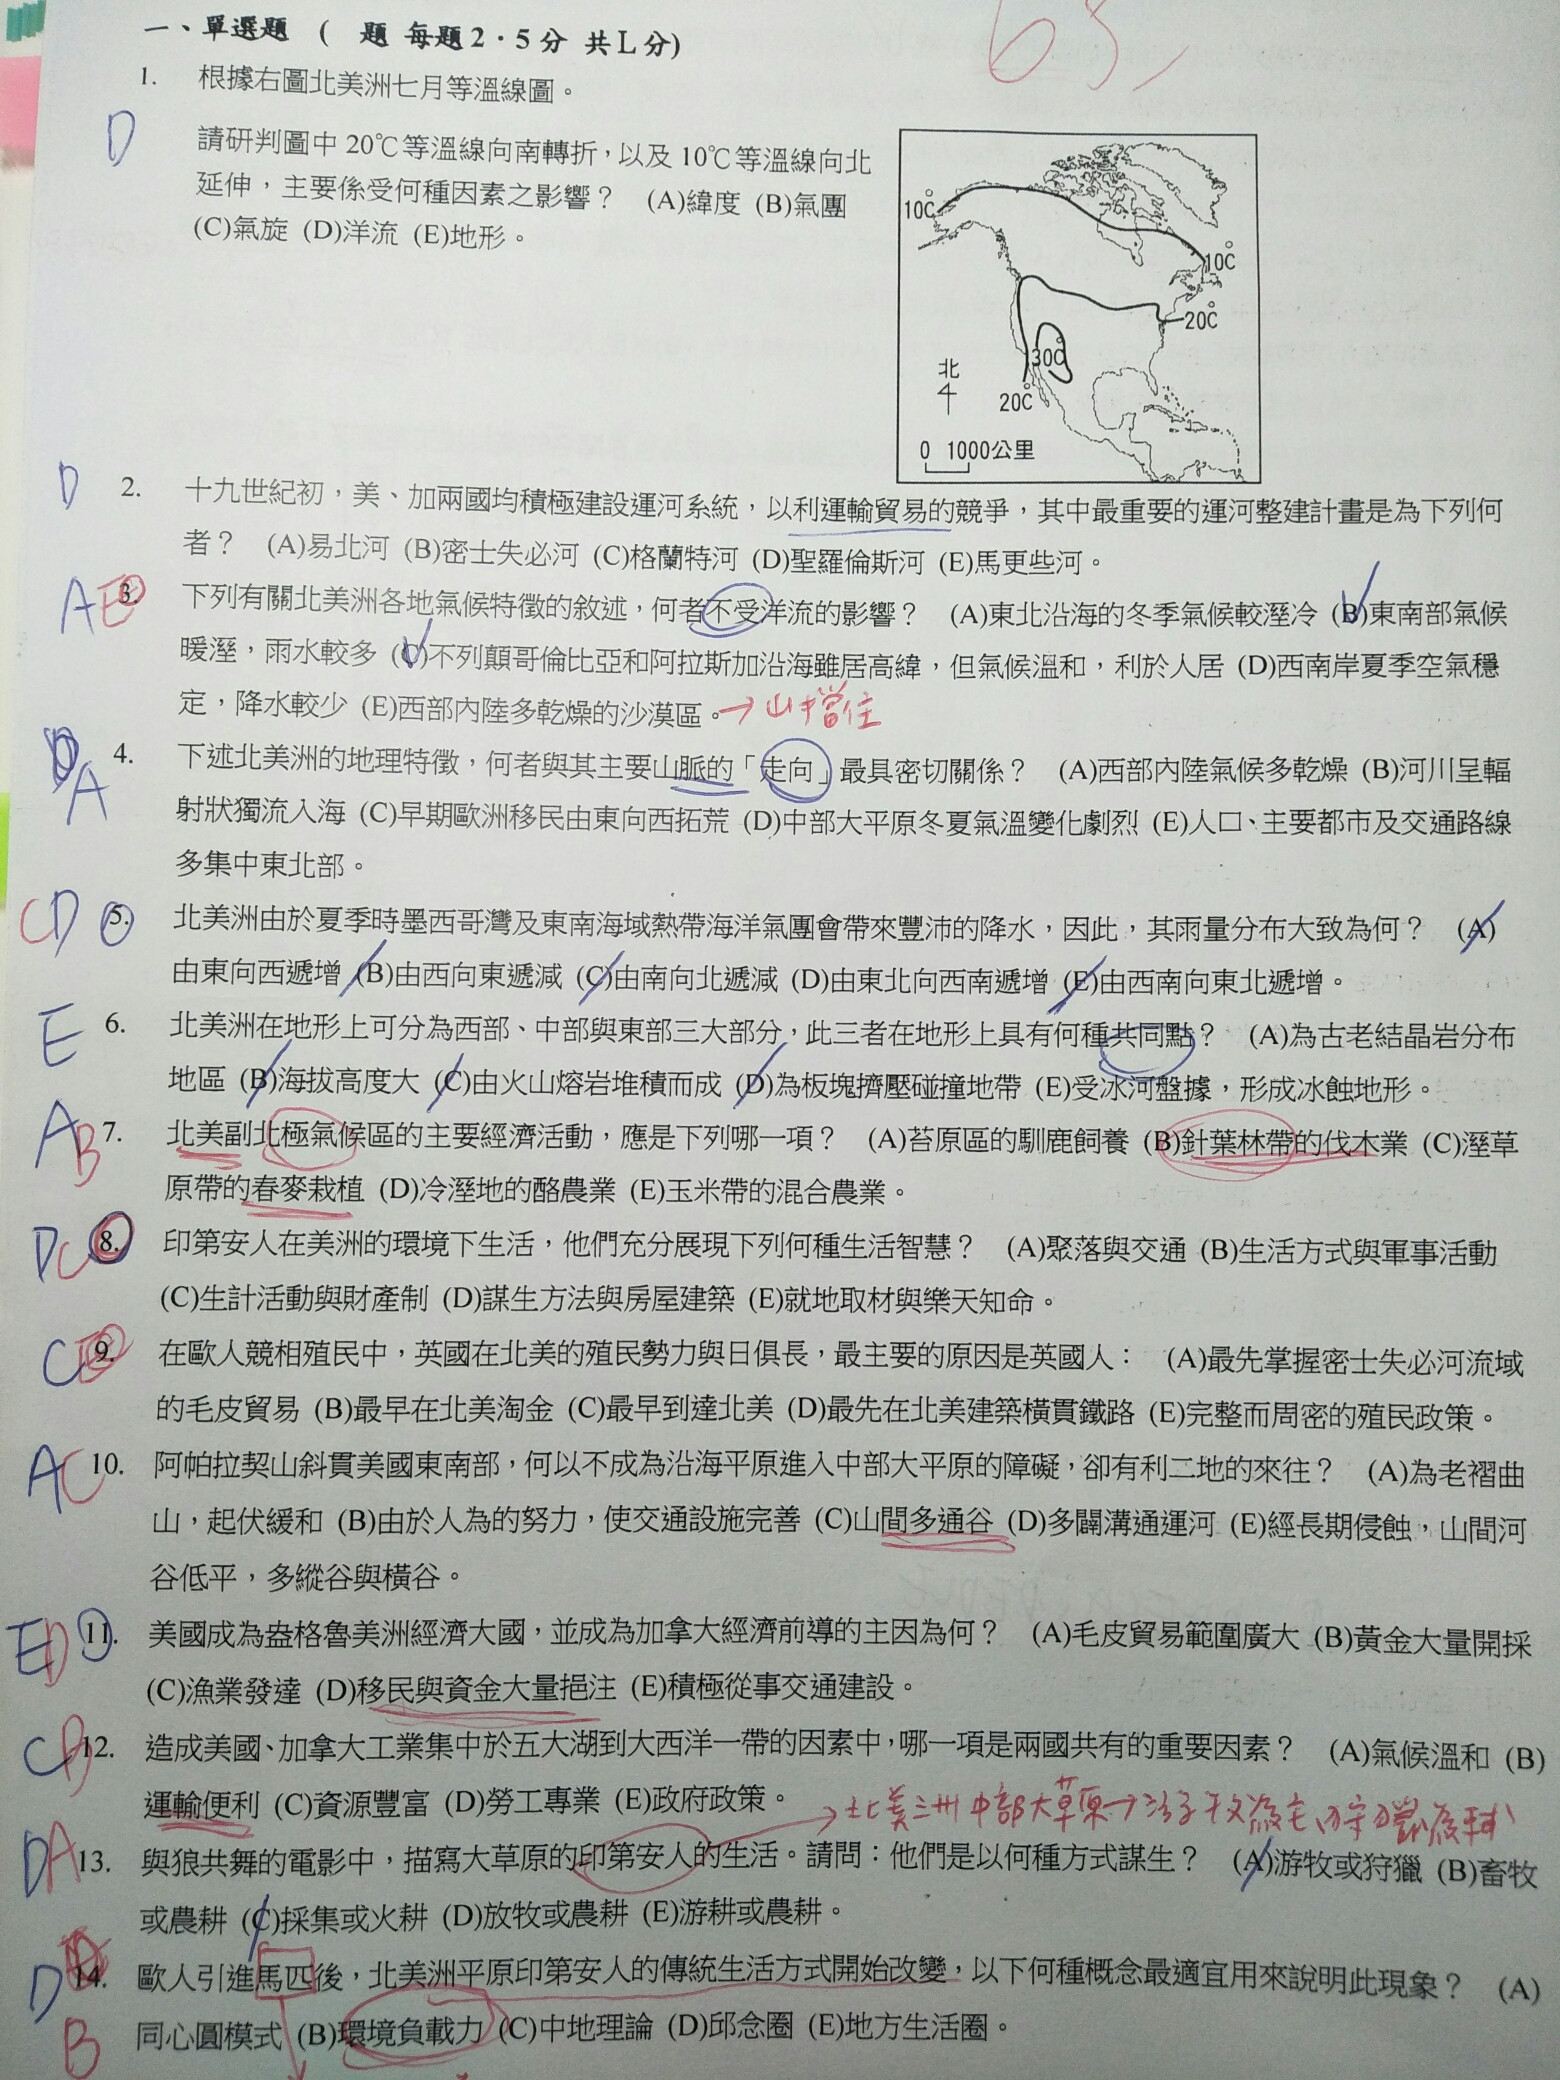 一、單選題 ( 題 每題2.5分 共L分)
63
1. 根據右圖北美洲七月等溫線圖。
D
請研判圖中20℃等溫線向南轉折，以及10℃等溫線向北
延伸，主要係受何種因素之影響？ (A)緯度 (B)氣團
(C)氣旋 (D)洋流 (E)地形。
10℃
10℃
20℃
30℃
北
20℃
0 1000公里
D 2. 十九世紀初，美、加兩國均積極建設運河系統，以利運輸貿易的競爭，其中最重要的運河整建計畫是為下列何
者？ (A)易北河 (B)密士失必河 (C)格蘭特河 (D)聖羅倫斯河 (E)馬更些河。
AE 3. 下列有關北美洲各地氣候特徵的敘述，何者不受洋流的影響？ (A)東北沿海的冬季氣候較溼冷 (B)東南部氣候
暖溼，雨水較多 (C)不列顛哥倫比亞和阿拉斯加沿海雖居高緯，但氣候溫和，利於人居 (D)西南岸夏季空氣穩
定，降水較少 (E)西部內陸多乾燥的沙漠區。→山擋住
A 4. 下述北美洲的地理特徵，何者與其主要山脈的「走向」最具密切關係？ (A)西部內陸氣候多乾燥 (B)河川呈輻
射狀獨流入海 (C)早期歐洲移民由東向西拓荒 (D)中部大平原冬夏氣溫變化劇烈 (E)人口、主要都市及交通路線
多集中東北部。
CD 5. 北美洲由於夏季時墨西哥灣及東南海域熱帶海洋氣團會帶來豐沛的降水，因此，其雨量分布大致為何？ (A)
由東向西遞增 (B)由西向東遞減 (C)由南向北遞減 (D)由東北向西南遞增 (E)由西南向東北遞增。
E 6. 北美洲在地形上可分為西部、中部與東部三大部分，此三者在地形上具有何種共同點？ (A)為古老結晶岩分布
地區 (B)海拔高度大 (C)由火山熔岩堆積而成 (D)為板塊擠壓碰撞地帶 (E)受冰河盤據，形成冰蝕地形。
AB 7. 北美副北極氣候區的主要經濟活動，應是下列哪一項？ (A)苔原區的馴鹿飼養 (B)針葉林帶的伐木業 (C)溼草
原帶的春麥栽植 (D)冷溼地的酪農業 (E)玉米帶的混合農業。
DC 8. 印第安人在美洲的環境下生活，他們充分展現下列何種生活智慧？ (A)聚落與交通 (B)生活方式與軍事活動
(C)生計活動與財產制 (D)謀生方法與房屋建築 (E)就地取材與樂天知命。
CE 9. 在歐人競相殖民中，英國在北美的殖民勢力與日俱長，最主要的原因是英國人： (A)最先掌握密士失必河流域
的毛皮貿易 (B)最早在北美淘金 (C)最早到達北美 (D)最先在北美建築橫貫鐵路 (E)完整而周密的殖民政策。
AC 10. 阿帕拉契山斜貫美國東南部，何以不成為沿海平原進入中部大平原的障礙，卻有利二地的來往？ (A)為老褶曲
山，起伏緩和 (B)由於人為的努力，使交通設施完善 (C)山間多通谷 (D)多闢溝通運河 (E)經長期侵蝕，山間河
谷低平，多縱谷與橫谷。
ED 11. 美國成為盎格魯美洲經濟大國，並成為加拿大經濟前導的主因為何？ (A)毛皮貿易範圍廣大 (B)黃金大量開採
(C)漁業發達 (D)移民與資金大量挹注 (E)積極從事交通建設。
CB 12. 造成美國、加拿大工業集中於五大湖到大西洋一帶的因素中，哪一項是兩國共有的重要因素？ (A)氣候溫和 (B)
運輸便利 (C)資源豐富 (D)勞工專業 (E)政府政策。
→北美洲中部大草原→游牧為主，狩獵為輔
DA 13. 與狼共舞的電影中，描寫大草原的印第安人的生活。請問：他們是以何種方式謀生？ (A)游牧或狩獵 (B)畜牧
或農耕 (C)採集或火耕 (D)放牧或農耕 (E)游耕或農耕。
D 14. 歐人引進馬匹後，北美洲平原印第安人的傳統生活方式開始改變，以下何種概念最適宜用來說明此現象？ (A)
B 同心圓模式 (B)環境負載力 (C)中地理論 (D)邱念圈 (E)地方生活圈。